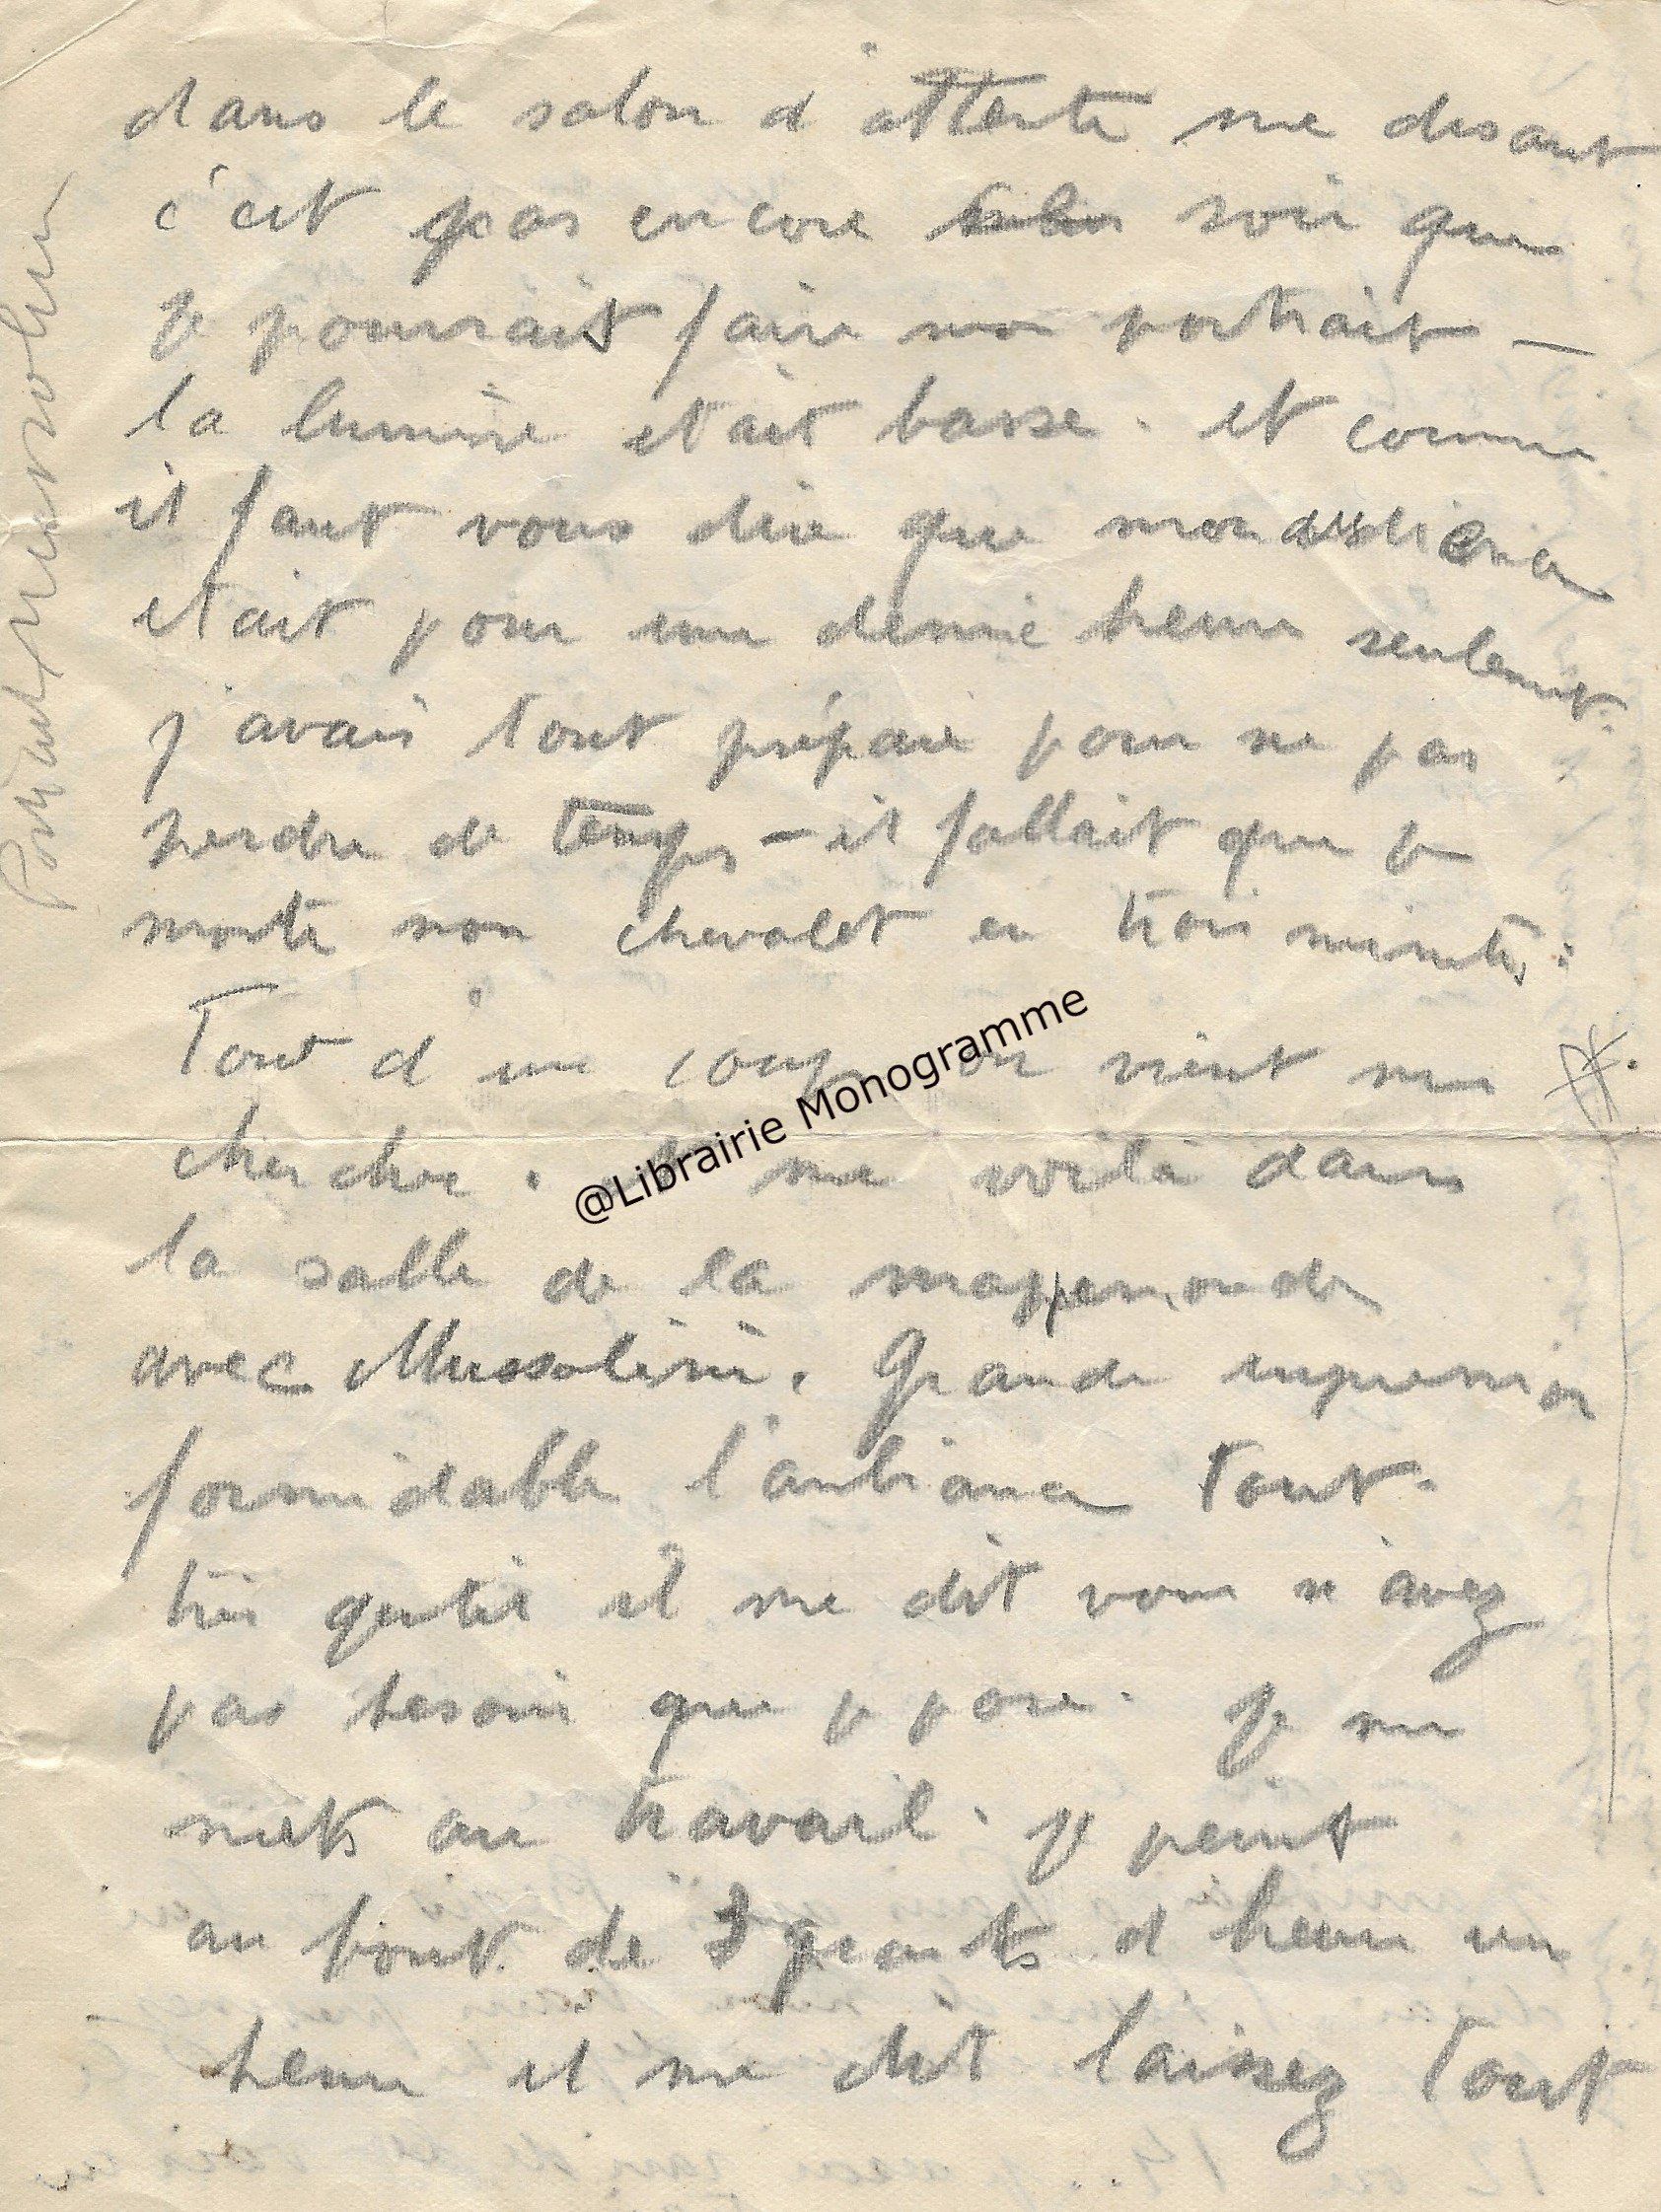 dans le salon d'attente me disant
c'est pas encore soir que
je pourrait faire mon portrait —
la lumière etait basse. et comme
il faut vous dire que mon audience
etait pour une demie heure seulement.
j'avais tout préparé pour ne pas
perdre de temps — il fallait que je
monte mon chevalet en trois minutes.
Tout d'un coup on vient me
chercher. et me voilà dans
la salle de la mappemonde
avec Mussolini. Grande impression
formidable l'anbiance tout.
très gentil il me dit vous n'avez
pas besoin que je pose. je me
mets au travail. je peint
au bout de 3 quarts d'heure une
heure il me dit laissez tout
Portrait Mussolini
@Librairie Monogramme